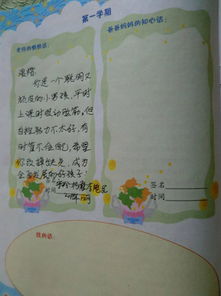 第一学期
老师的悄悄话:
爸爸妈妈的知心话:
你是一个聪明又
活泼的小男孩,平时
上课时很动脑筋,但
自控能力不太好,有
时管不住自己,希望
你改掉缺点,成为
全面发展的好孩子!
签名
时间
签名
时间
我的话: